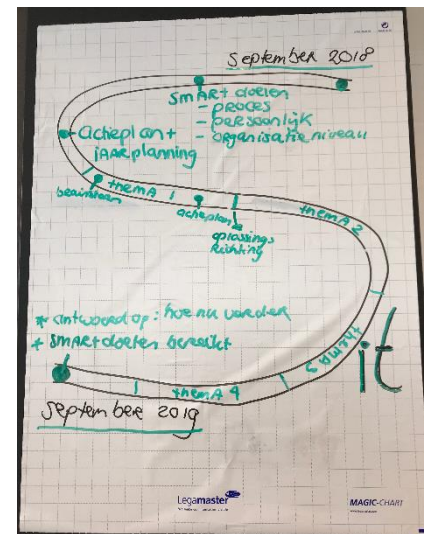 September 2018
SMARt doelen
- proces
- persoonlijk
- organisatie niveau
actieplan +
jAARplanning
thema 1
brainstorm
actieplan
oplossings
Richting
thema 2
thema 3
it
* antwoord op: hoe nu verder
* SMARt doelen bereikt
thema 4
September 2019
Legamaster
MAGIC-CHART